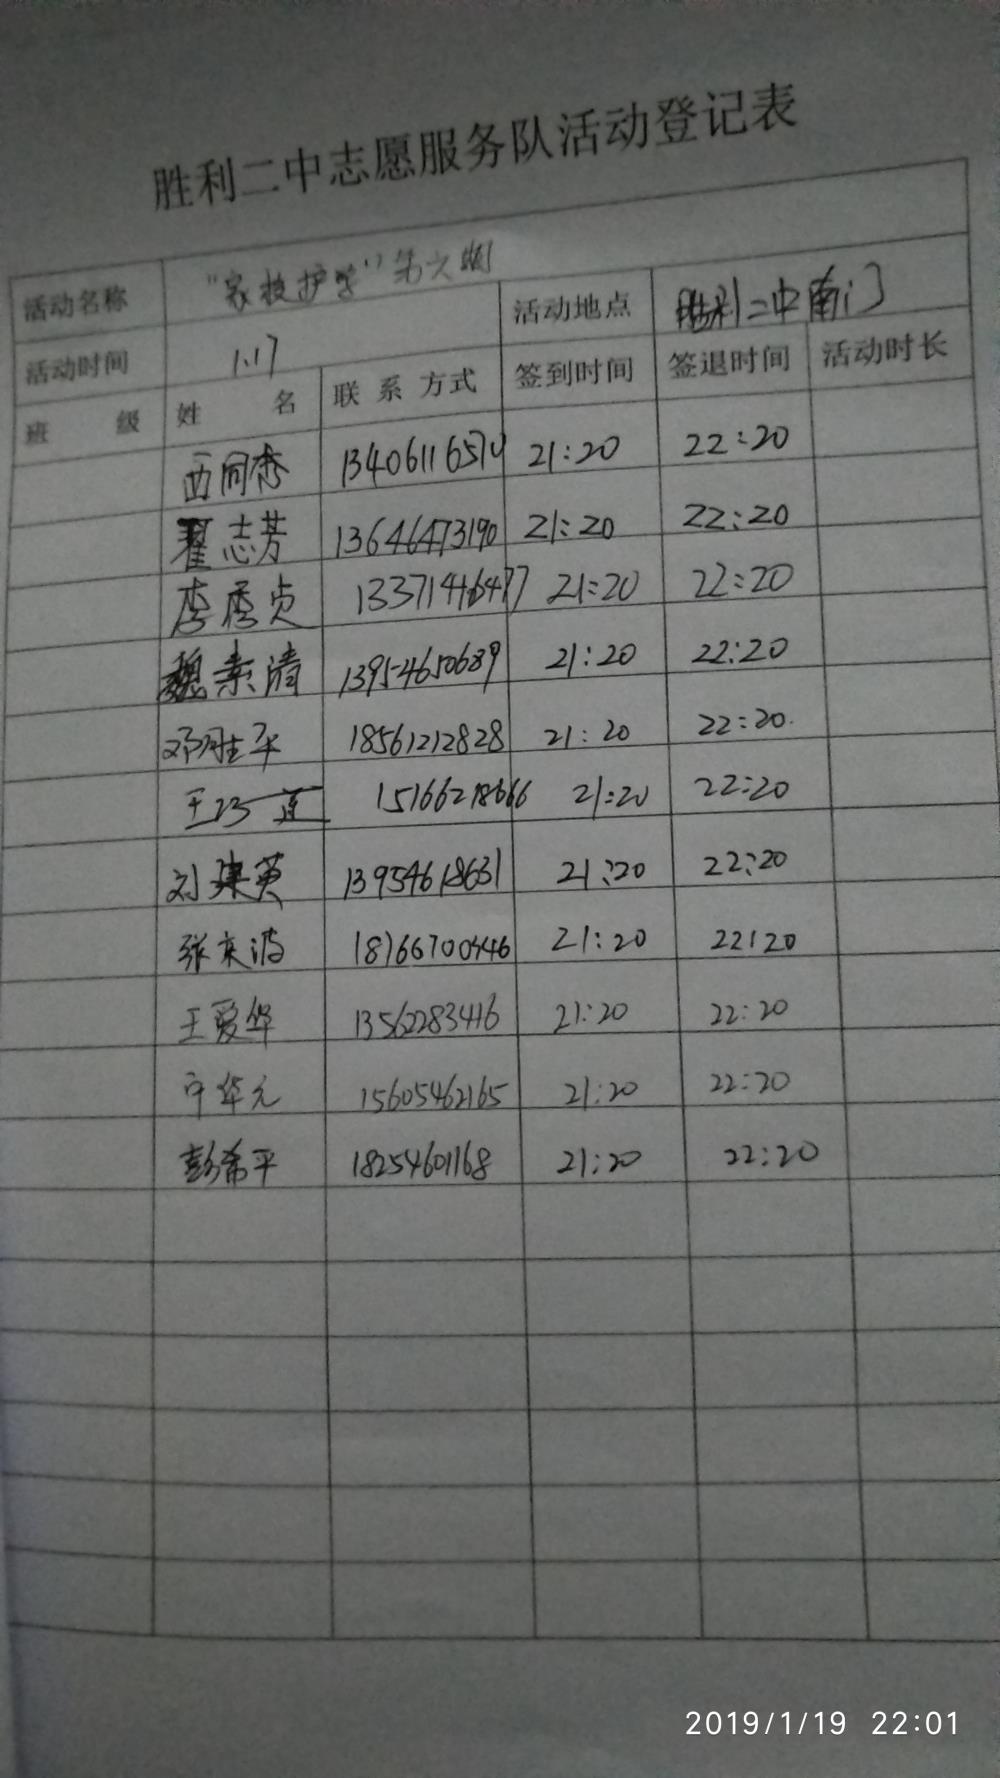 胜利二中志愿服务队活动登记表
活动名称 "家校护学"第六期
活动时间 1.17 活动地点 胜利二中南门
班 级 姓 名 联系方式 签到时间 签退时间 活动时长
13406116570 21:20 22:20
翟志芳 13646473190 21:20 22:20
李秀贞 13371446477 21:20 22:20
魏素清 13954650689 21:20 22:20
邓胜平 18561212828 21:20 22:20.
15166218666 21:20 22:20
刘建英 13954618631 21:20 22:20
张京波 18766700446 21:20 22:20
王爱华 13562283416 21:20 22:20
宁华元 15605462165 21:20 22:20
彭希平 18254601168 21:20 22:20
2019/1/19 22:01